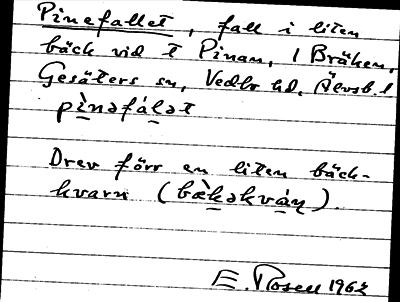 Pinefallet, fall i liten
bäck vid t Pinan, 1 Bräken,
Gesäters sn, Vedbo hd, Älvsb. l
pìnəfáḷət
Drev förr en liten bäck-
kvarn (bæ̀kəkváṇ).
E. Rosell 1962